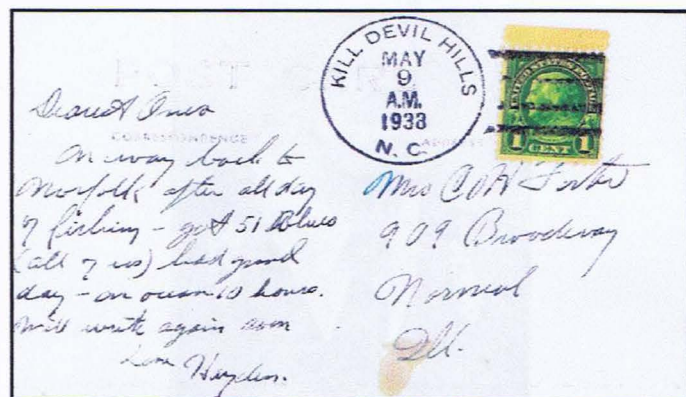 POST CARD
CORRESPONDENCE
KILL DEVIL HILLS
MAY
9
A.M.
1933
N. C.
UNITED STATES POSTAGE
1 CENT 1
Dearest
On way back to
Norfolk after all day
of fishing - got 51 Blues
(all of us) had good
day - on ocean 10 hours.
Will write again soon
Love Hayden.
Mrs C W Foster
909 Broadway
Normal
Ill.